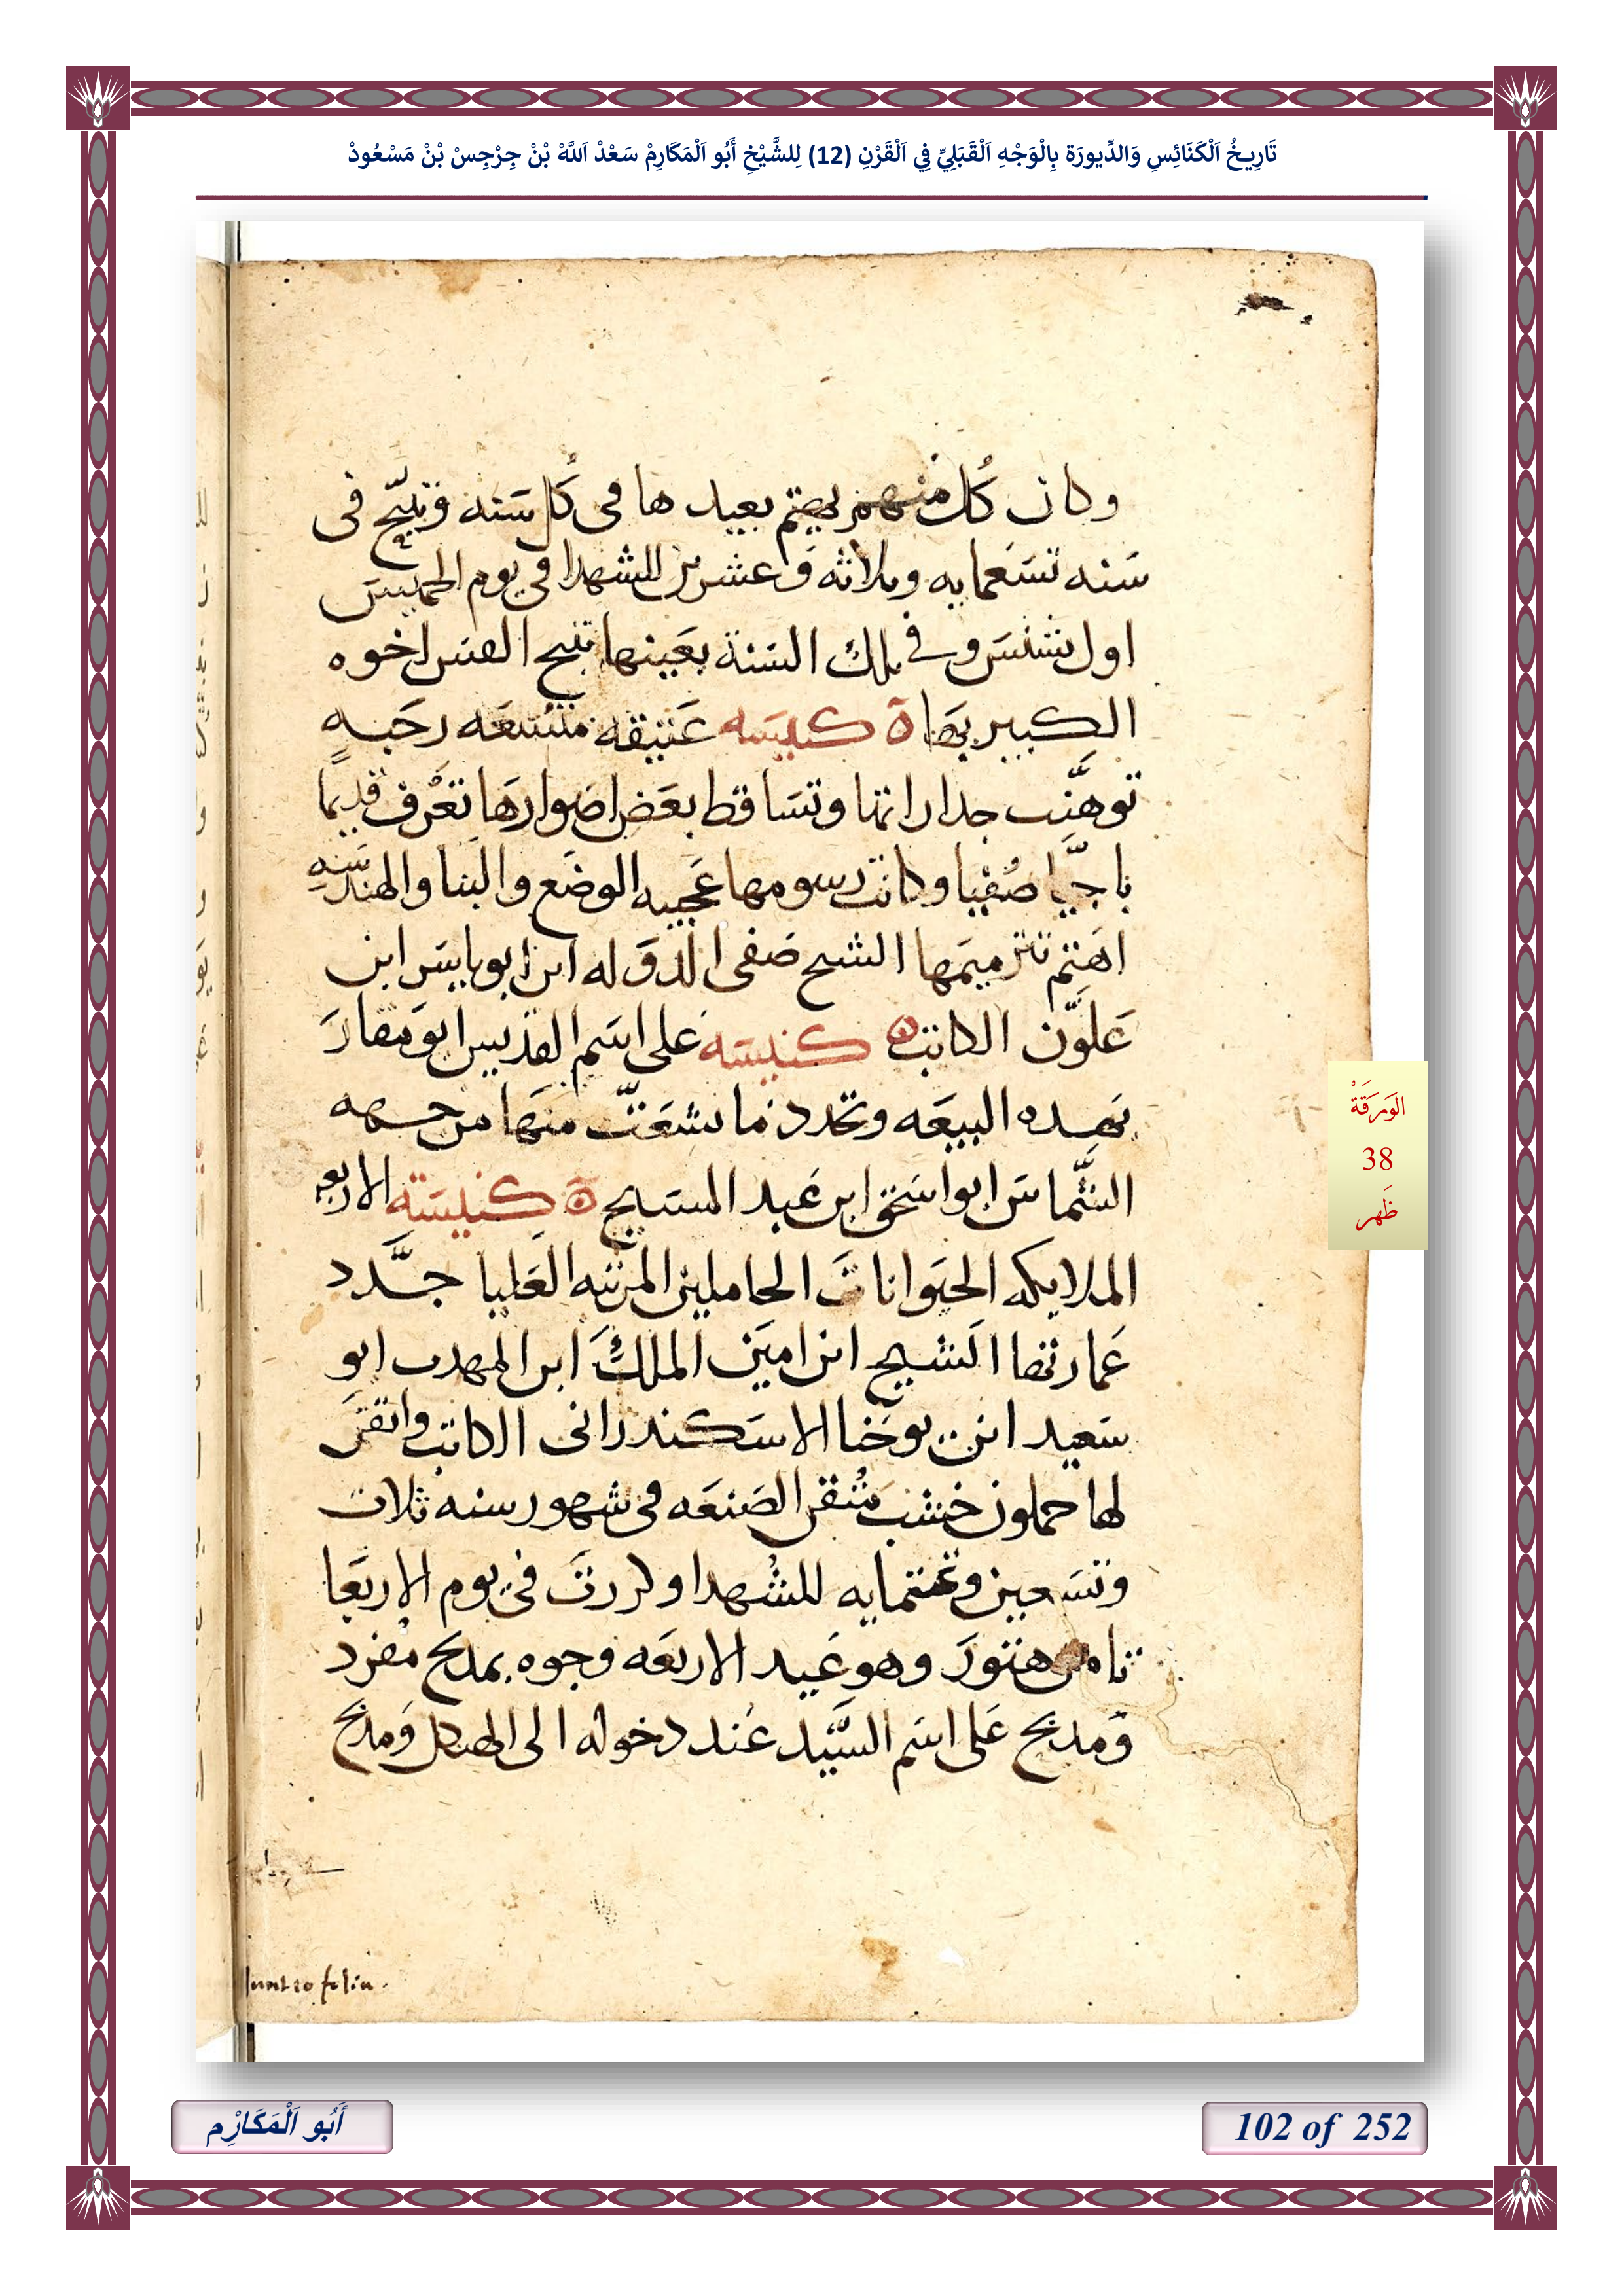 تَارِيخُ اَلْكَنَائِسِ وَالدِّيورَة بِالْوَجْهِ اَلْقَبَلِيِّ فِي اَلْقَرْنِ (12) لِلشَّيْخِ أَبُو اَلْمَكَارِمْ سَعْدْ اَللَّهْ بْنْ جِرْجِسْ بْنْ مَسْعُودْ
وكان كُل منهم يهتم بعيدها في كُل سَنه وَتنيّح في
سَنه تسَعمايه وثلاثه وَعشرين للشهدا في يوم الخميسَ
اول بشنسَ وفي تلك السَنة بعَينها تنيح القس اخوه
الكبير بهَا ة كنيسَه عَتيقه متسَعَه رحَبه
توهنَّت جداراتها وتسَاقط بعَض اضوارهَا تعَرف قديمًا
باجيَّا صُفيا وكانت رسومها عَجيبه الوضَع والبنا والهندسَه
اهَتم بترميمَها الشيخ صَفى الدَوَله ابن ابو ياسَر ابن
عَلوَّن الكاتب ة كنيسَه على اسَم القديس ابوَ مقارَ
بهَذه البيعَه وتجدد ما تشعَّت منهَا من جهه
الشمَّاسَ ابو اسَحق ابن عَبد المسَيح ة كنيسَة الاربع
الملايكه الحَيَوانات الحاملين المرتبه العَليا جدَّد
عَمارتها الشيخ ابن امين الملك ابن المهدب ابو
سَعيد ابن يوحَنا الاسَكندرانى الكاتب واتقنَ
لها حملون خشب مُتقن الصَنعَه في شهور سنه ثلاث
وتسَعين وثمنمايه للشُهدا وكررت في يوم الاربعَا
ثامن هتورَ وهو عَيد الاربعَه وجوه بمدبح مفرد
وَمدبح عَلى اسَم السَيَّد عَند دخوله الى الهيكل وَمدبح
الوَرَقَةْ
38
ظَهر
أَبُو اَلْمَكَارِْم
102 of 252